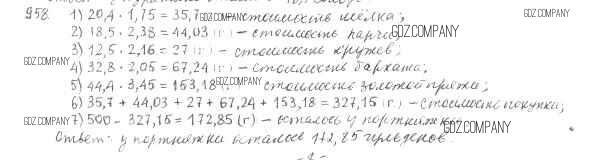 958. 1) 20,4 · 1,75 = 35,7 GDZ.COMPANY стоимость шёлка; GDZ.COMPANY
2) 18,5 · 2,38 = 44,03 (г) – стоимость парчи GDZ.COMPANY
3) 12,5 · 2,16 = 27 (г) – стоимость кружев;
GDZ.COMPANY 4) 32,8 · 2,05 = 67,24 (г) – стоимость бархата;
5) 44,4 · 3,45 = 153,18 GDZ.COMPANY стоимость золотой пряжи;
6) 35,7 + 44,03 + 27 + 67,24 + 153,18 = 327,15 (г.) – стоимость покупки;
GDZ.COMPANY 7) 500 – 327,15 = 172,85 (г) – осталось у портняжки GDZ.COMPANY
Ответ: у портняжки осталось 172,85 гульденов.